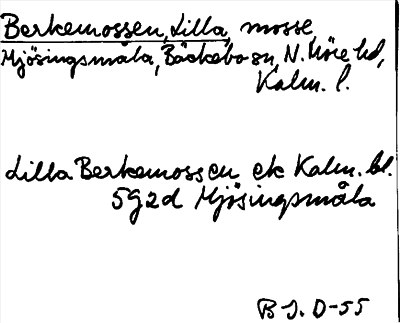 Berkemossen, Lilla, mosse
Mjösingsmåla, Bäckebo sn, N. Möre hd,
Kalm. l.
Lilla Berkemossen ek Kalm. bl.
5g2d Mjösingsmåla
B J. D-55